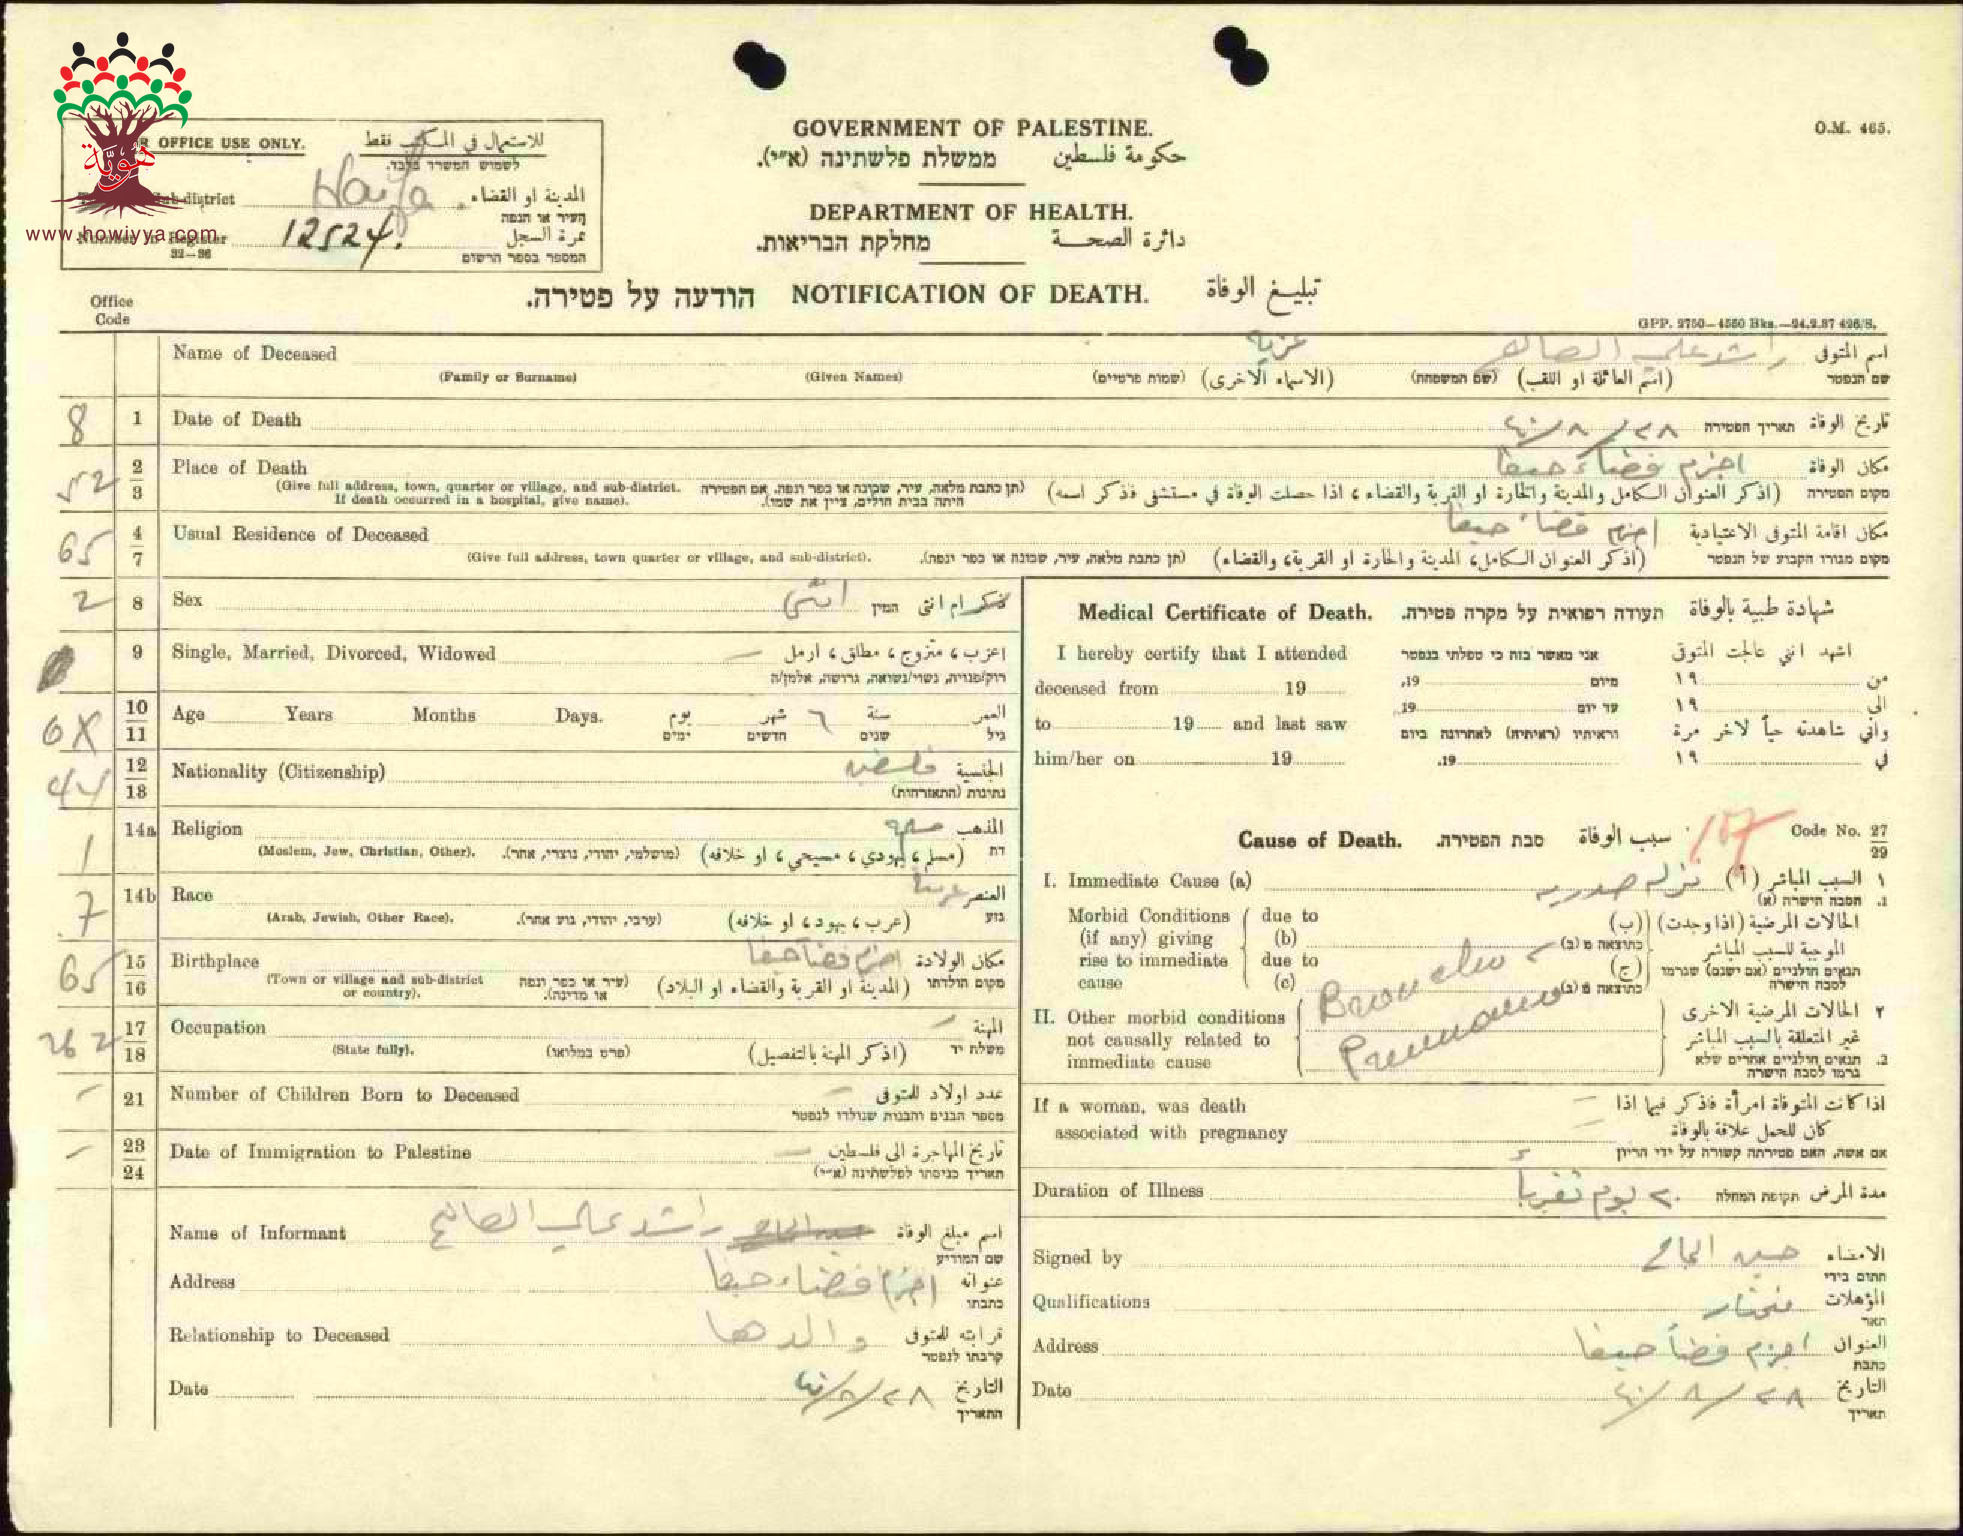 هوية
www.howiyya.com
OFFICE USE ONLY. للاستعمال في المكتب فقط
לשמוש המשרד בלבד.
Sub-district Haifa المدينة او القضاء
העיר או הנפה
Number in Register 12524. نمرة السجل
32—36 המספר בספר הרשום
GOVERNMENT OF PALESTINE.
ממשלת פלשתינה (א״י). حكومة فلسطين
DEPARTMENT OF HEALTH.
מחלקת הבריאות. دائرة الصحة
O.M. 465.
הודעה על פטירה. NOTIFICATION OF DEATH. تبليغ الوفاة
Office
Code
GPP. 2750—4550 Bks.—24.2.37 426/S.
Name of Deceased راشد علي الصالح اسم المتوفى
(Family or Surname) (Given Names) (שמות פרטיים) (الاسماء الاخرى) (שם המשפחה) (اسم العائلة او اللقب) שם הנפטר
8 1 Date of Death ٢٨/٨/٤٠ תאריך הפטירה تاريخ الوفاة
52 2 Place of Death اجزم قضاء حيفا مكان الوفاة
3 (Give full address, town, quarter or village, and sub-district. (תן כתבת מלאה, עיר, שכונה או כפר ונפה. אם הפטירה (اذكر العنوان الكامل والمدينة والحارة او القرية والقضاء ، اذا حصلت الوفاة في مستشفى فاذكر اسمه) מקום הפטירה
If death occurred in a hospital, give name). היתה בבית חולים, ציין את שמו).
65 4 Usual Residence of Deceased اجزم قضاء حيفا مكان اقامة المتوفى الاعتيادية
7 (Give full address, town quarter or village, and sub-district). (תן כתבת מלאה, עיר, שכונה או כפר ונפה). (اذكر العنوان الكامل، المدينة والحارة او القرية، والقضاء) מקום מגורו הקבוע של הנפטר
2 8 Sex انثى המין ذكر ام انثى
9 Single, Married, Divorced, Widowed — اعزب ، متزوج ، مطلق ، ارمل
רוק/פנויה, נשוי/נשואה, גרושה, אלמן/ה
6X 10 Age Years Months Days. يوم شهر ٦ سنة العمر
11 ימים חדשים שנים גיל
44 12 Nationality (Citizenship) الجنسية
13 נתינות (התאזרחות)
1 14a Religion المذهب
(Moslem, Jew, Christian, Other). (מושלמי, יהודי, נוצרי, אחר). (مسلم ، يهودي ، مسيحي ، او خلافه) דת
7 14b Race العنصر
(Arab, Jewish, Other Race). (ערבי, יהודי, גזע אחר). (عرب ، يهود ، او خلافه) גזע
65 15 Birthplace اجزم قضا حيفا مكان الولادة
16 (Town or village and sub-district (עיר או כפר ונפה (المدينة او القرية والقضاء او البلاد) מקום הולדתו
or country). או מדינה).
262 17 Occupation — المهنة
18 (State fully). (פרט במלואו) (اذكر المهنة بالتفصيل) משלח יד
— 21 Number of Children Born to Deceased — عدد اولاد للمتوفى
מספר הבנים והבנות שנולדו לנפטר
— 23 Date of Immigration to Palestine — تاريخ المهاجرة الى فلسطين
24 תאריך כניסתו לפלשתינה (א״י)
Name of Informant راشد علي الصالح اسم مبلغ الوفاة
שם המודיע
Address اجزم قضاء حيفا عنوانه
כתבתו
Relationship to Deceased والدها قرابته للمتوفى
קרבתו לנפטר
Date ٢٨/٨/٤٠ التاريخ
התאריך
Medical Certificate of Death. תעודה רפואית על מקרה פטירה. شهادة طبية بالوفاة
I hereby certify that I attended אני מאשר בזה כי טפלתי בנפטר اشهد انني عالجت المتوفى
deceased from 19 19, מיום ١٩ من
to 19 and last saw 19, עד יום ١٩ الى
וראיתיו (ראיתיה) לאחרונה ביום واني شاهدته حياً لاخر مرة
him/her on 19 19. ١٩ في
Cause of Death. סבת הפטירה. سبب الوفاة 107 Code No. 27
29
I. Immediate Cause (a) نزله صدريه السبب المباشر (أ) ١
הסבה הישרה (א) 1.
Morbid Conditions due to الحالات المرضية (اذا وجدت) (ب)
(if any) giving (b) כתוצאה מ (ב) الموجبة للسبب المباشر
rise to immediate due to (ج) תנאים חולניים (אם ישנם) שגרמו
cause (c) כתוצאה מ (ב) לסבה הישרה
Broncho-
Pneumonia
II. Other morbid conditions الحالات المرضية الاخرى ٢
not causally related to غير المتعلقة بالسبب المباشر
immediate cause תנאים חולניים אחרים שלא 2.
גרמו לסבה הישרה
If a woman, was death — اذا كانت المتوفاة امرأة فاذكر فيما اذا
associated with pregnancy كان للحمل علاقة بالوفاة
אם אשה, האם פטירתה קשורה על ידי הריון
Duration of Illness ٢٠ يوم تقريباً תקופת המחלה مدة المرض
Signed by حسين الحاج الامضاء
חתום בידי
Qualifications مختار المؤهلات
תאר
Address اجزم قضا حيفا العنوان
כתבת
Date ٢٨/٨/٤٠ التاريخ
תאריך